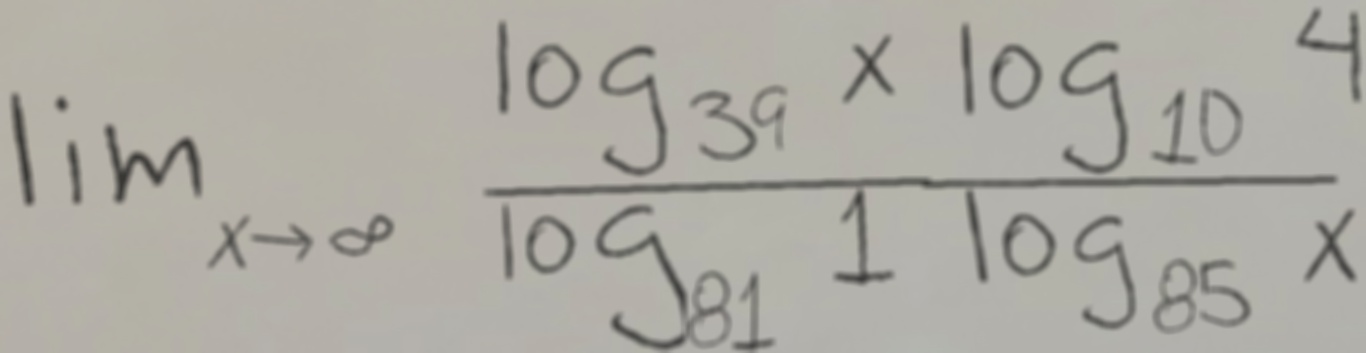 lim x→∞ \frac{log_{39} x log_{10} 4}{log_{81} 1 log_{85} x}